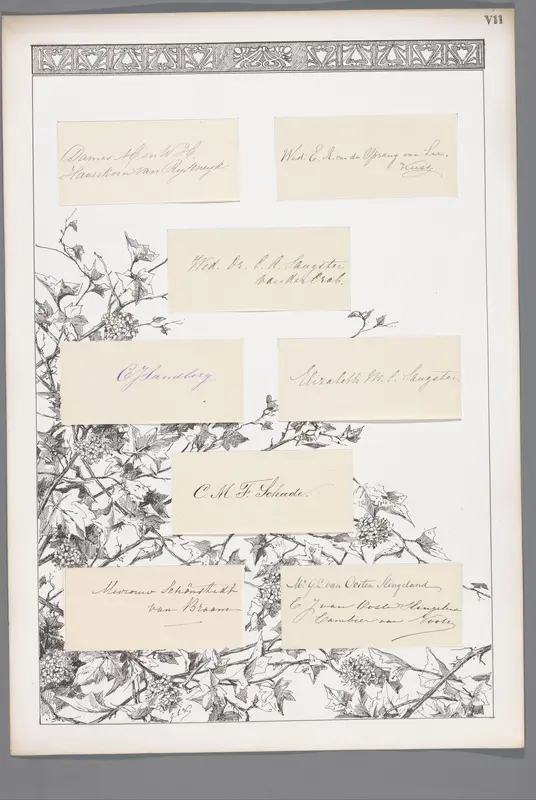 VII
Dames M. en W. H.
Hauschorn van Rijskwijk
Wed: E. A. van der Sprang van
Wed. Dr. C. A. Sangster
van der Crab.
C J Sandberg
Elizabeth M. C. Sangster
C. M. F. Schade.
Mevrouw Schönstedt
van Braam
Mr. G. C. van Oosten Slingeland
C J van Oosten Slingeland
Cambier van Nooten